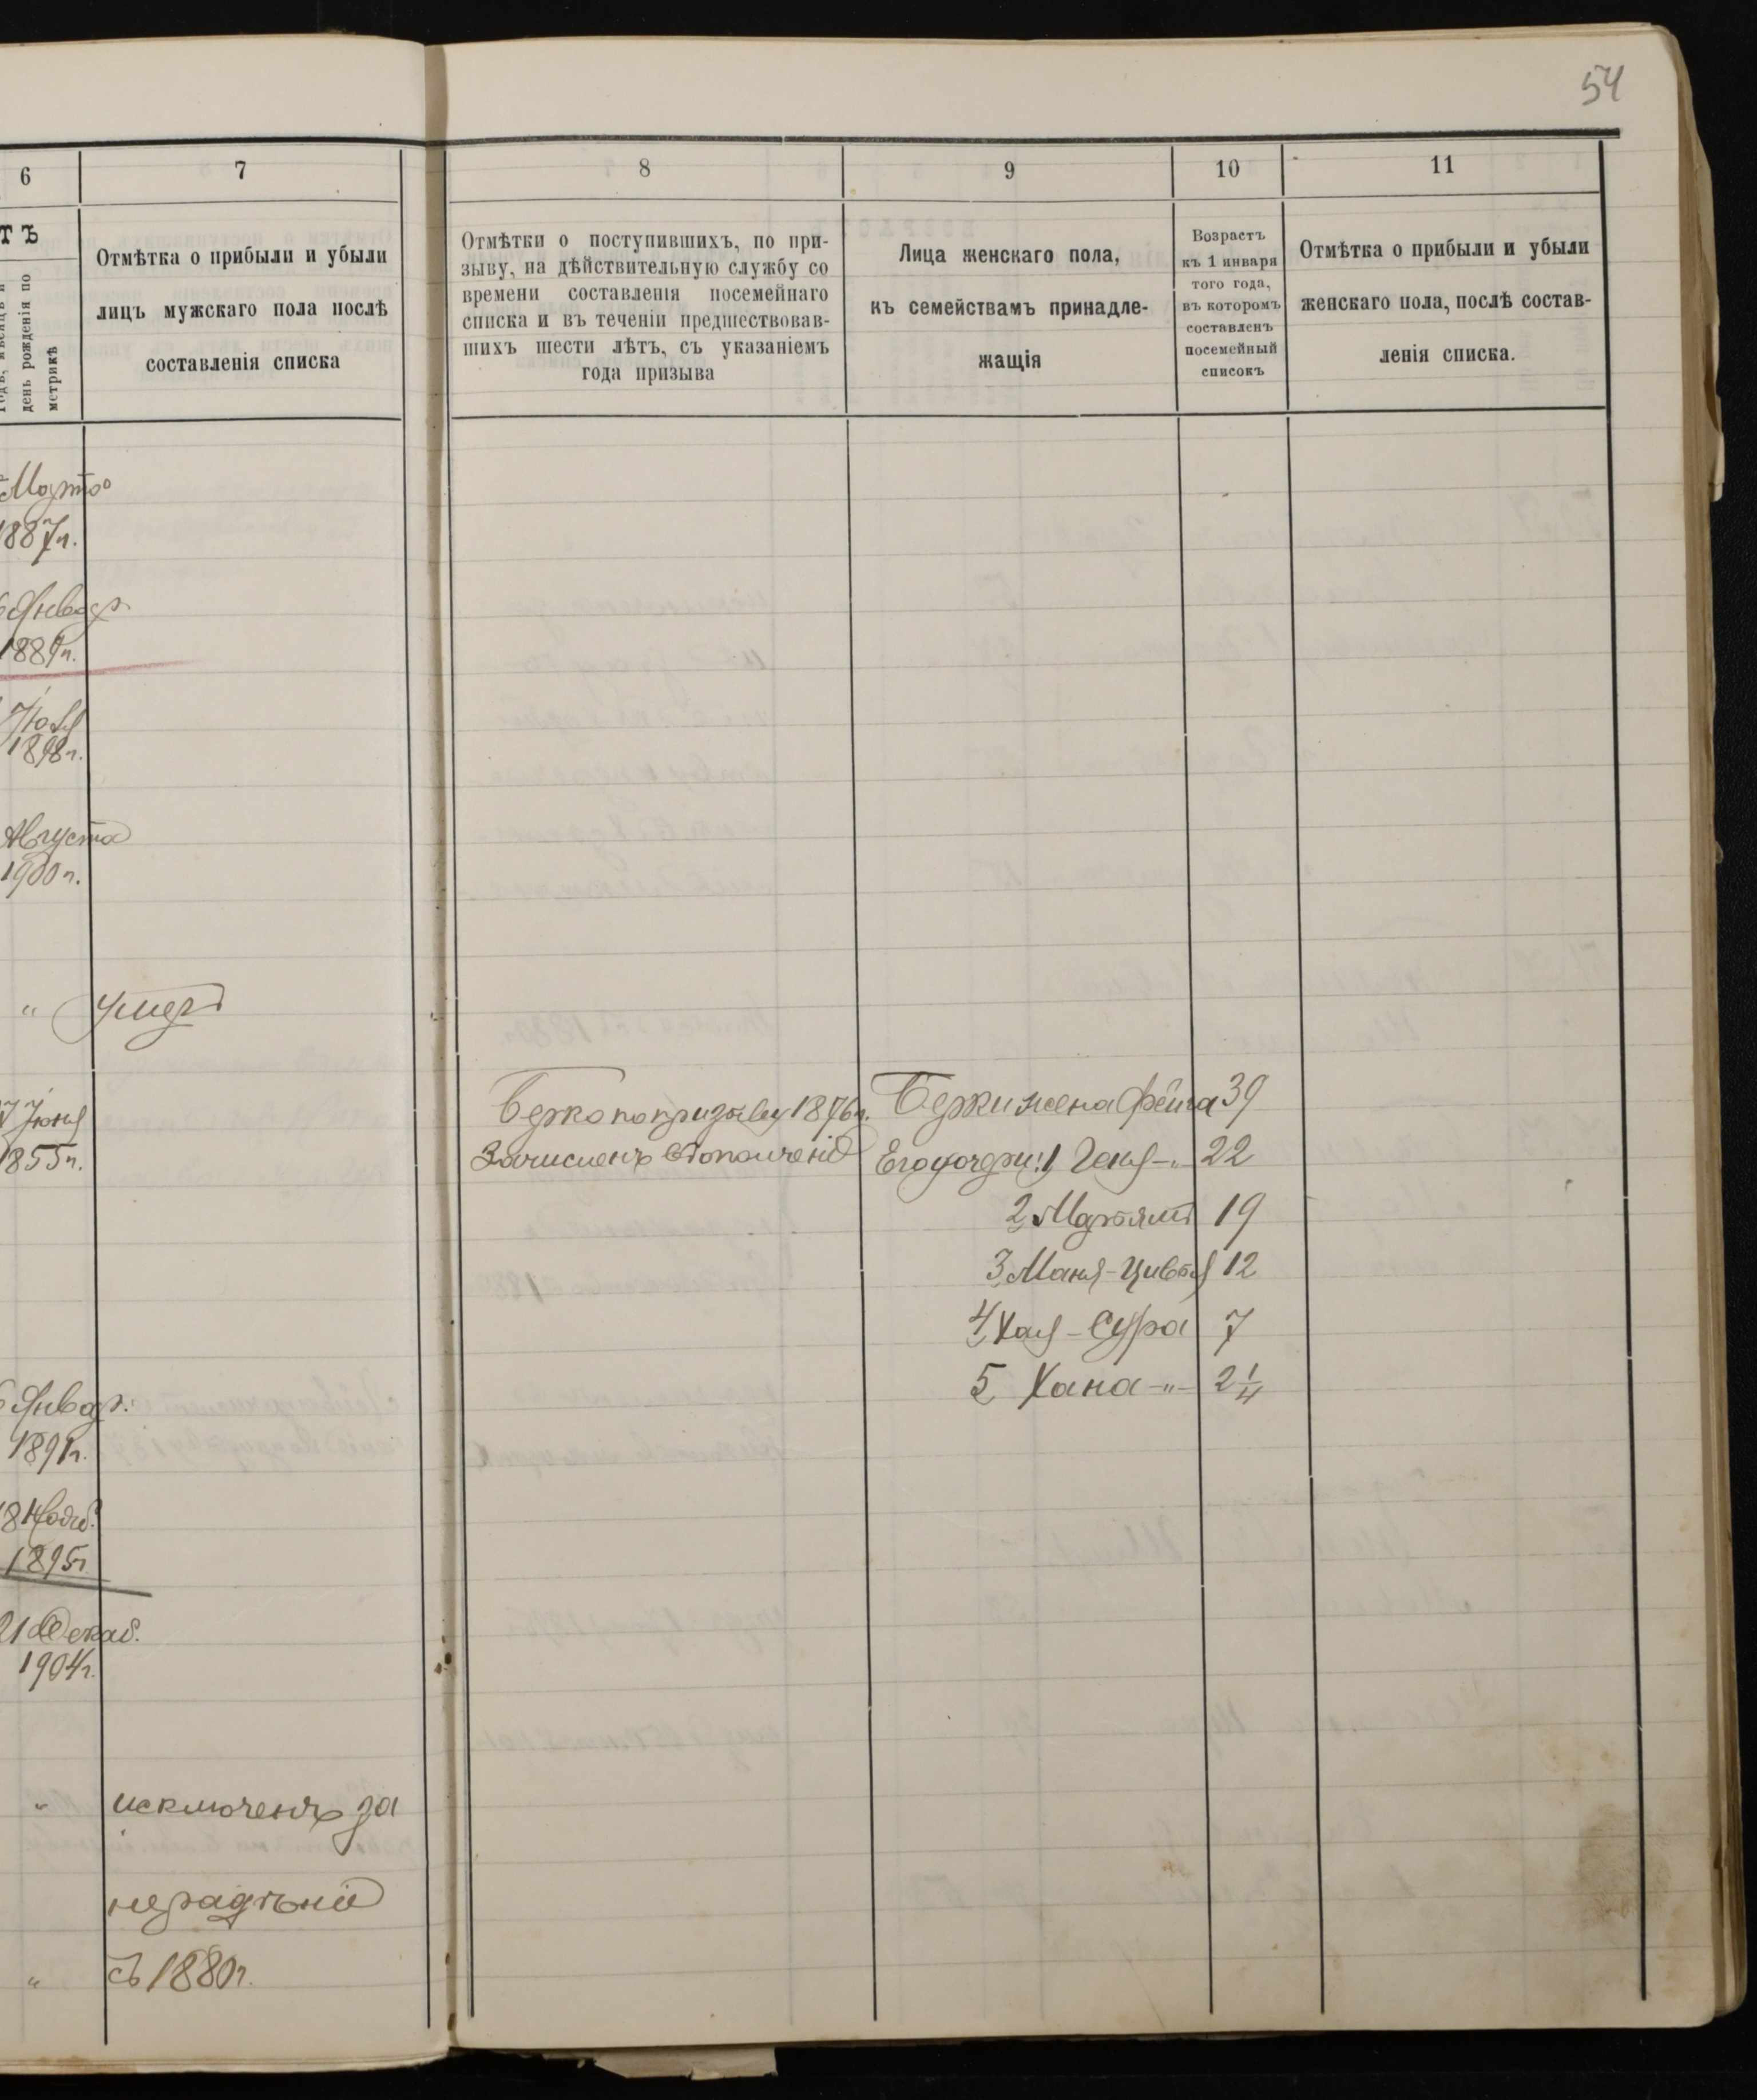 54
6
7
8
9
10
11
ТЪ
день рожденія по
метрикѣ
Отмѣтка о прибыли и убыли
лицъ мужскаго пола послѣ
составленія списка
Отмѣтки о поступившихъ, по при-
зыву, на дѣйствительную службу со
времени составленія посемейнаго
списка и въ теченіи предшествовав-
шихъ шести лѣтъ, съ указаніемъ
года призыва
Лица женскаго пола,
къ семействамъ принадле-
жащія
Возрастъ
къ 1 января
того года,
въ которомъ
составленъ
посемейный
списокъ
Отмѣтка о прибыли и убыли
женскаго пола, послѣ состав-
ленія списка.
Марта
1887г.
Январ.
1889г.
1898г.
Августа
1900г.
" Умеръ
7 Іюня
1855г.
Берко по призыву 1876г.
Зачисленъ въ ополченіе
Берки жена Фейга 39
Его дочери: 1, Геня -"- 22
2, Марьямъ 19
3, Маня-Цивья 12
4, Хая-Сура 7
5, Хана -"- 2 1/4
6 Январ.
1891г.
18 Нояб.
1895г
21 Декаб.
1904г.
" исключенъ за
нерадѣніе
" съ 1880г.